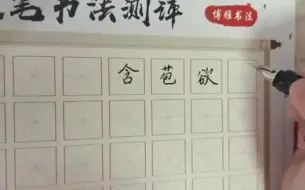 笔书法测评
博雅书法
含苞欲